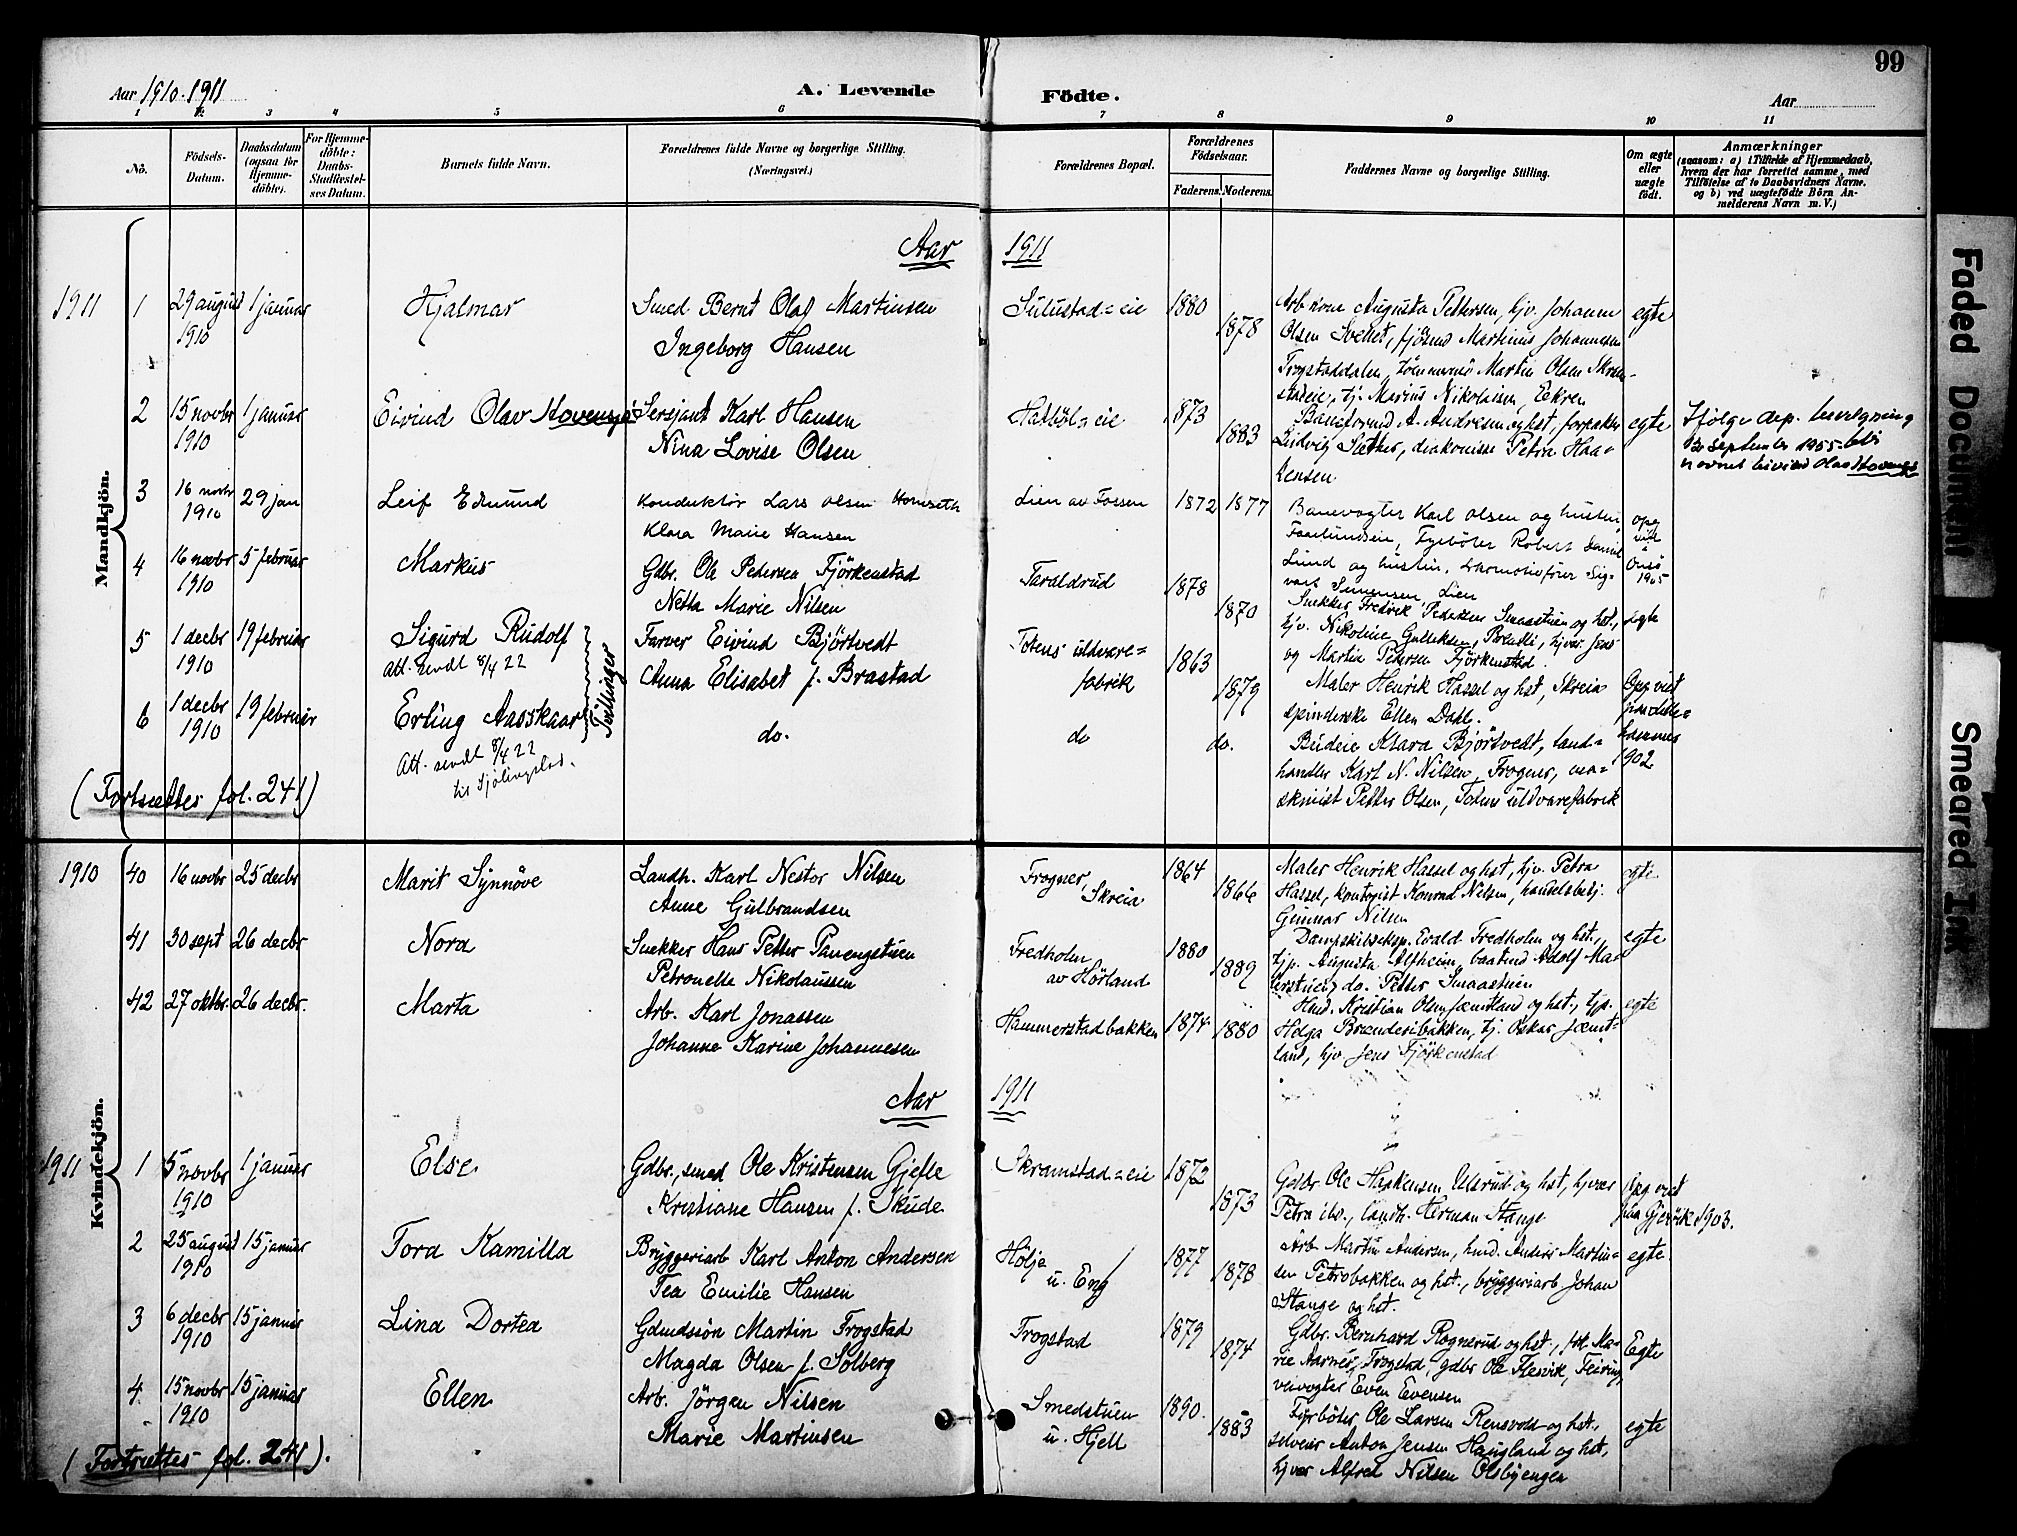 99
Aar 1910-1911
A. Levende Födte.
Aar
1 2 3 4 5 6 7 8 9 10 11
No.
Födsels-Datum.
Daabsdatum (ogsaa for Hjemme-döbte).
For Hjemme-döbte: Daabs-Stadfæstel-ses Datum.
Barnets fulde Navn.
Forældrenes fulde Navne og borgerlige Stilling. (Næringsvei.)
Forældrenes Bopæl.
Forældrenes Födselsaar.
Faderens. Moderens.
Faddernes Navne og borgerlige Stilling.
Om ægte eller uægte födt.
Anmærkninger
(saasom: a) i Tilfælde af Hjemmedaab, hvem der har forrettet samme, med Tilföielse af to Daabsvidners Navne, og b) ved uægtefödte Börn An-melderens Navn m. V.)
Mandkjön.
Aar 1911
1911 1 29 august 1910 1 januar Hjalmar
Smed Bernt Olaf Martinsen
Ingeborg Hansen
Sulustad=eie 1880 1878
Arb. kone Augusta Pettersen, hjv. Johanne
Olsen Svehet, fjösmd Martinius Johannesen
Frogstaddalen, tömmermd Martin Olsen Skram-
stadeie, tj. Marius Nikolaisen, Eekren
egte
2 15 novbr 1910 1 januar Eivind Olav Hovensjø
Sersjant Karl Hansen
Nina Lovise Olsen
Hatböl=eie 1873 1883
Baneformd A. Andresen og hst,
Ludvig Sæther, diakonisse Petra Haa-
kensen
egte
Ifølge dep. bevegning
12 september 1955 blir
navnet Eivind Olav Hovensjø
3 16 novbr 1910 29 jan Leif Edmund
Konduktör Lars Olsen Homseth
Klara Marie Hansen
Lien av Fossen 1872 1877
Banevogter Karl Olsen og hustru
Faarlundseie, Fyrböter Robert Daniel
Lund og hustru, Lokomotivförer Sig-
vart Simensen, Lien
opg viet i Onsö 1905
4 16 novbr 1910 5 februar Markus
Gdbr. Ole Pedersen Fjörkenstad
Netta Marie Nilsen
Taraldrud 1878 1870
Snekker Fredrik Pedersen Smaastuen og hst.,
hjv. Nikoline Gulliksen, Brendli, hjvær. Jens
og Martin Pedersen Fjörkenstad.
egte
5 1 decbr 1910 19 februar Sigurd Rudolf
Att. sendt 8/4 22
Farver Eivind Björtvedt
Anna Elisabet f. Brastad
Totens uldvare=
fabrik 1863 1879
Maler Henrik Hassel og hst, Skreia
spinderske Ellen Dahl.
Opg viet paa Lille=hammer 1902
Tvillinger
6 1 decbr 1910 19 februar Erling Aasskaar
Att. sendt 8/4 22
do. do do.
Budeie Klara Björtvedt, land=
handler Karl N. Nilsen, Frogner, ma=
skinist Petter Olsen, Totens uldvarefabrik
(Fortsættes fol. 241)
Kvindekjön.
1910 40 16 novbr 25 decbr Marit Synnöve
Landh. Karl Nestor Nilsen
Anne Gulbrandsen
Frogner, Skreia 1864 1866
Maler Henrik Hassel og hst, hjv. Petra
Hassel, kontorist Konrad Nilsen, handelsbetj.
Gunnar Nilsen
egte
41 30 sept 26 decbr Nora
Snekker Hans Petter Panengstuen
Petronelle Nikolaussen
Fredholm
av Hörland 1880 1889
Dampskibseksp. Evald Fredholm og hst.,
tjp. Augusta Alfheim, baatmd Adolf Ma-
lerstuen, do. Petter Smaastuen
egte
42 27 oktbr. 26 decbr. Marta
Arb. Karl Jonassen
Johanne Karine Johannesen
Hammerstadbakken 1874 1880
Hmd. Kristian Olsen Jæmtland og hst., tjp.
Helga Brænderibakken, tj. Oskar Jæmt=
land, hjv. Jens Fjörkenstad
egte
Aar 1911
1911 1 5 novbr 1910 1 januar Else
Gdbr., smed Ole Kristensen Gjefle
Kristiane Hansen f. Skude
Skramstad=eie 1872 1873
Gdbr Ole Haakensen Ulsrud og hst, hjvær
Petra ibd., landh. Herman Stange
Opg viet paa Gjövik 1903.
2 25 august 1910 15 januar Tora Kamilla
Bryggeriarb Karl Anton Andersen
Tea Emilie Hansen
Hölje
u. Eng 1877 1878
Arb. Martin Andersen, hmd. Anders Martin=
sen Petrobakken og hst., bryggeriarb Johan
Stange og hst.
egte.
3 6 decbr 1910 15 januar Lina Dortea
Gdmdssön Martin Frogstad
Magda Olsen f. Solberg
Frogstad 1879 1874
Gdbr. Bernhard Rognerud og hst., frk. Ma-
rie Aarnes, Frogstad, gdbr Ole Flesvik, Feiring,
veivogter Even Evensen
Egte
4 15 novbr 1910 15 januar Ellen
Arb. Jörgen Nilsen
Marie Martinsen
Smedstuen
u. Hjell 1890. 1883
Fyrböter Ole Larsen Rensvold og hst.,
selveier Anton Jensen Haugland og hst,
hjvær Alfred Nilsen Olsbyengen
egte
(Fortsættes fol. 241).
Faded Document
Smeared Ink